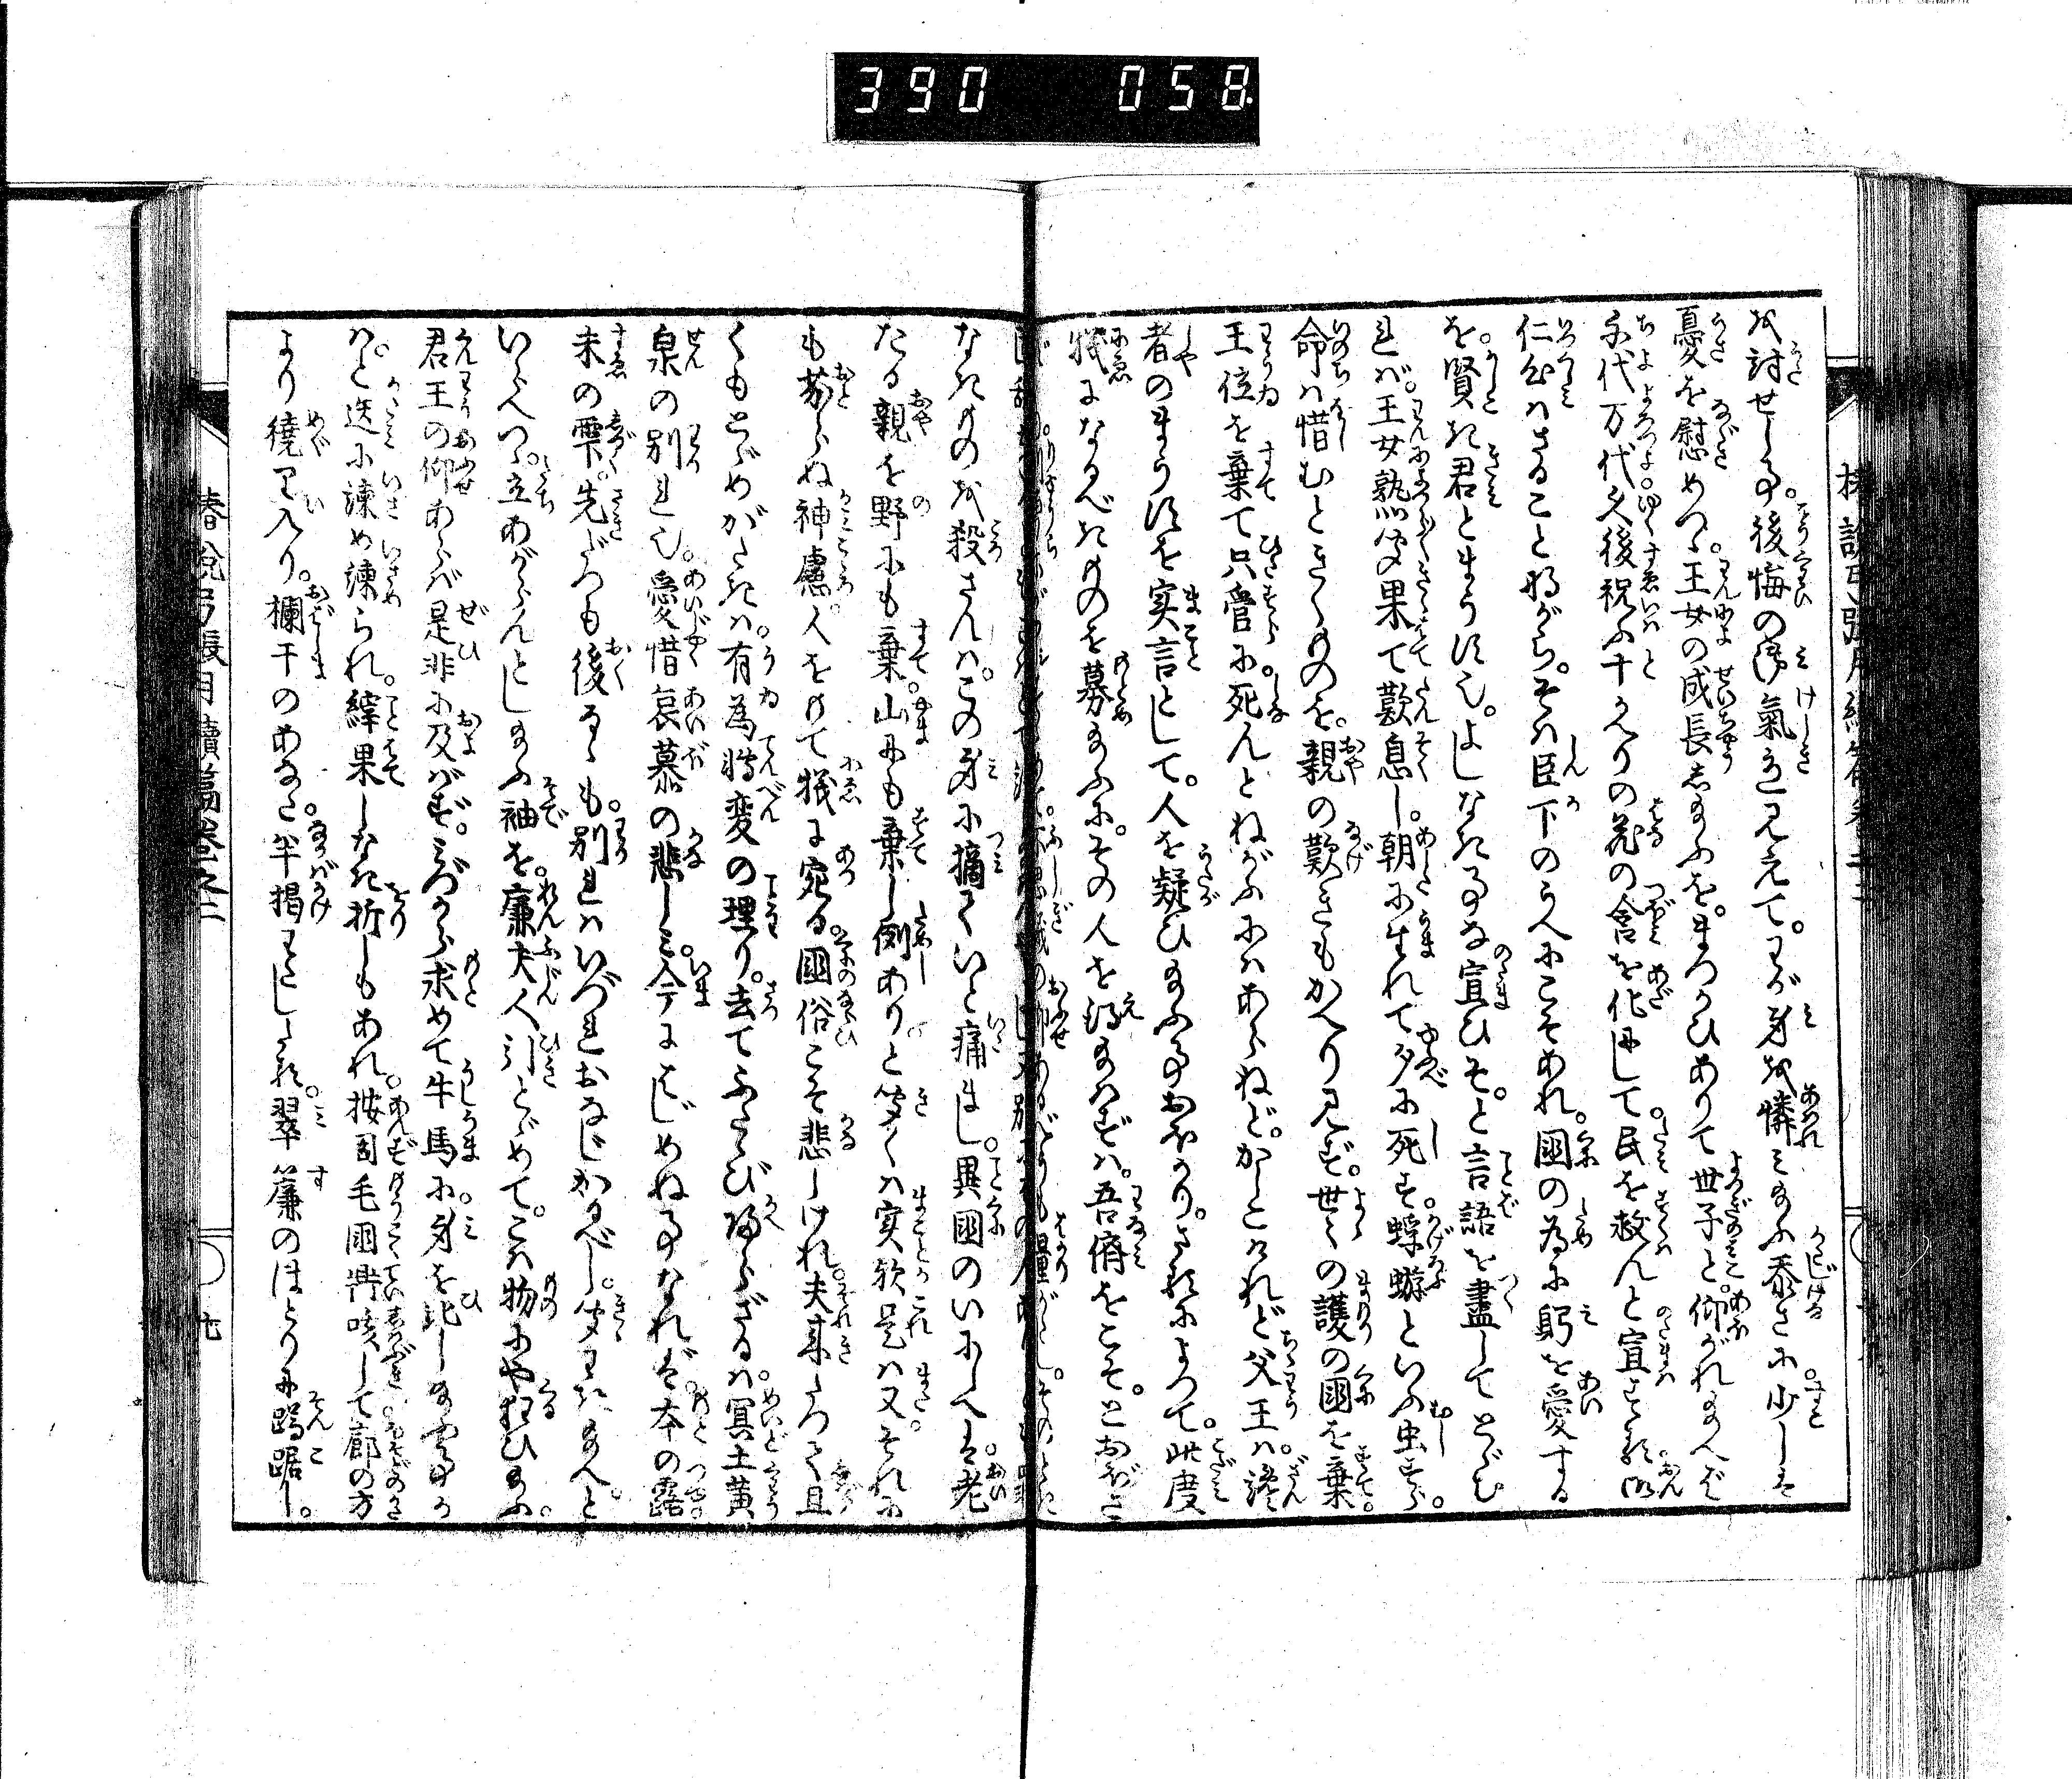 390 058
を討せし事。後悔の御氣色見えて。わが身を憐みまふ忝さに。少しは
憂を慰めつゝ。王女の成長しまふを。まつかひありて世子と。仰がれまへば
千代万代久後祝ふ十かへりの花の含を化にして。民を救んと宣する御
仁心はさることながら。そは臣下のうへにこそあれ。國の為に躬を愛する
を。賢き君とまうす也。よしなき事な宣ひそ。と言語を盡してとゞむ
れば。王女熟聞果て歎息し。朝に生れて夕に死す。蜉蝣といふ虫すら。
命は惜むときくものを。親の歎きもかへり見ず。世々の護の國を棄。
王位を棄て只管に死んとねがふにはあらねど。かしこけれど父王は。讒
者のまうすを実言として。人を疑ひまふ事おほかり。さるによつて。此度
犠になるべきものを募まふに。その人を得まはずは。吾儕をこそ。とおぼさ
なきものを殺さんは。この身に摘ていと痛まし。異國のいにしへは。老
たる親を野にも棄。山にも棄し例ありと聞くは実欤是は又。それに
も劣らぬ神慮。人をもて犠に宛る國俗こそ悲しけれ。夫来つて且
くもとゞめがたきは。有為轉変の理り。去てふたゝび歸らざるは。冥土黄
泉の別れ也。愛惜哀慕の悲しみ。今にはじめぬ事なれば。本の露
末の雫。先だつも後るゝも。別れはいづれおなじかるべし。聞わきまへと
いらへつゝ。立あがらんとしまふ袖を。廉夫人引とゞめて。こは物にや狂ひまふ。
君王の仰あらば是非に及ばず。みづから求めて牛馬に。身を比しまふ事か
は。と迭に諫め諫られ。縡果しなき折しもあれ。按司毛國鼎咳して廊の方
より繞り入り。欄干のあなた。半掲わたしたる。翠簾のほとりに蹲踞し。
椿説弓張月續篇巻之二
七